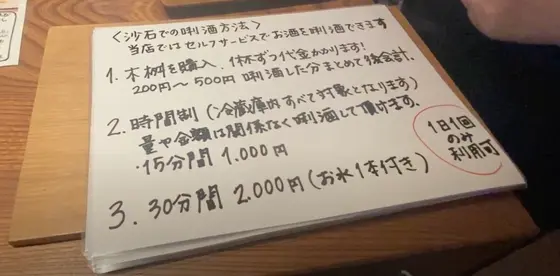 〈沙石での唎酒方法〉
当店ではセルフサービスでお酒を唎酒できます
1. 木桝を購入、1杯ずつ代金かかります!
200円~500円 唎酒した分まとめて後会計。
2. 時間制(冷蔵庫内すべて対象となります)
量や金額は関係なく唎酒して頂けます。
・15分間 1.000円
3. 30分間 2.000円(お水1本付き)
1日1回
のみ
利用可